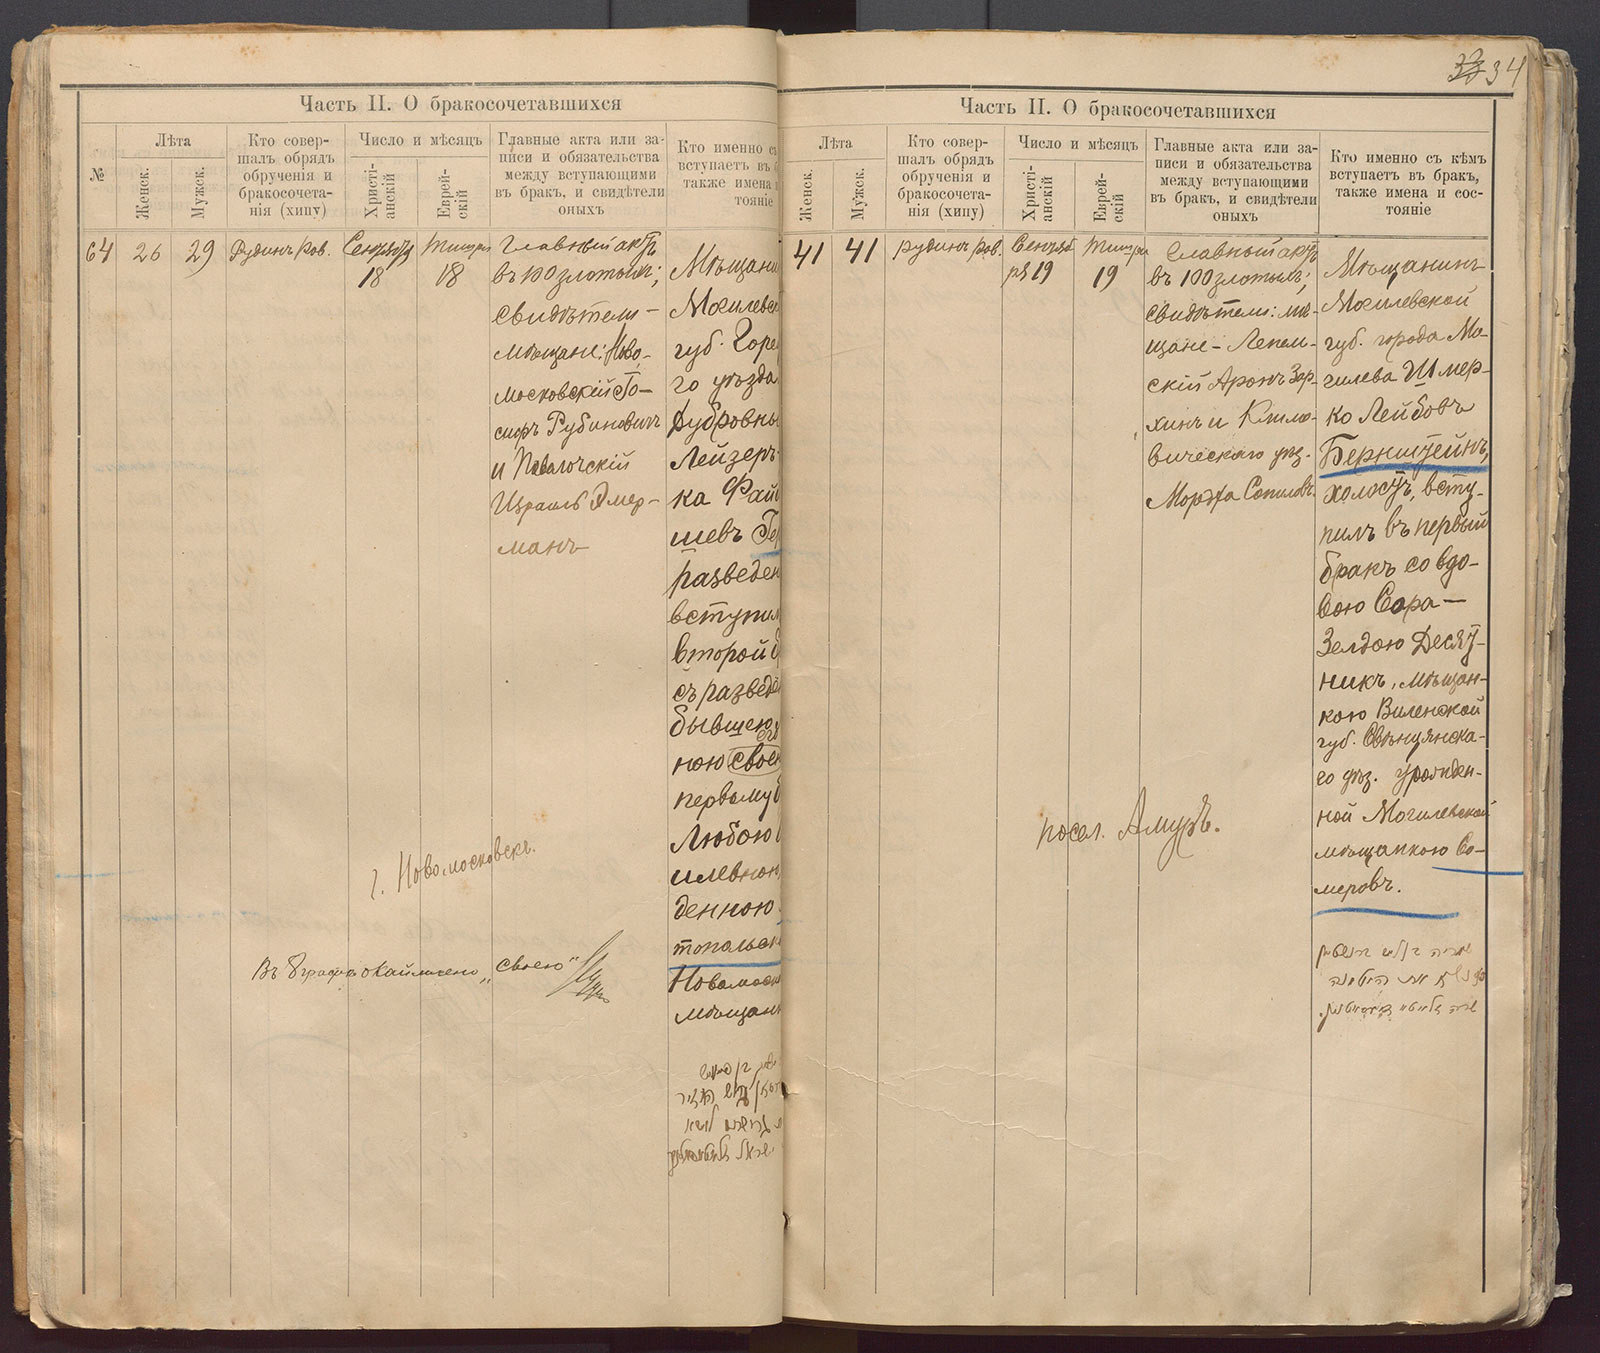 33 34
Часть II. О бракосочетавшихся
№
Лѣта
Женск.
Мужск.
Кто совер-
шалъ обрядъ
обрученія и
бракосочета-
нія (хипу)
Число и мѣсяцъ
Христі-
анскій
Еврей-
скій
Главные акта или за-
писи и обязательства
между вступающими
въ бракъ, и свидѣтели
оныхъ
Кто именно съ
вступаетъ въ
также имена
тояніе
64
26
29
Рудинъ Рав.
Сентября
18
Тишри
18
Главный актъ
въ 100 злотыхъ;
свидѣтели —
мѣщане: Ново-
московскій Іо-
сифъ Рубиновичъ
и Паволочскій
Израиль Эмер-
манъ
Мѣщани
Могилевс
губ. Горе
го уѣзда
Дубровны
Лейзеръ
ка Фай
шевъ
разведен
вступил
второй б
съ разведе
бывшею
ною свое
первому б
Любою
илевною
денною
топольск
Новомоск
мѣщанк
г. Новомосковскъ.
Въ 8 графѣ "своею"
Часть II. О бракосочетавшихся
Лѣта
Женск.
Мужск.
Кто совер-
шалъ обрядъ
обрученія и
бракосочета-
нія (хипу)
Число и мѣсяцъ
Христі-
анскій
Еврей-
скій
Главные акта или за-
писи и обязательства
между вступающими
въ бракъ, и свидѣтели
оныхъ
Кто именно съ кѣмъ
вступаетъ въ бракъ,
также имена и сос-
тояніе
41
41
Рудинъ Рав.
Сентяб
ря 19
Тишри
19
Главный актъ
въ 100 злотыхъ;
свидѣтели: мѣ-
щане — Лепель-
скій Аронъ Зар-
хинъ и Климо-
вическаго уѣз.
Мордха
Мѣщанинъ
Могилевской
губ. города Мо-
гилева Шмер-
ко Лейбовъ
Бернштейнъ,
холостъ, всту-
пилъ въ первый
бракъ со вдо-
вою Сара —
Зелдою Десят-
никъ, мѣщан-
кою Виленской
губ. Свѣнцянска-
го уѣз. урожден-
ной Могилевской
мѣщанкою Со-
меровъ.
посел. Амуръ.